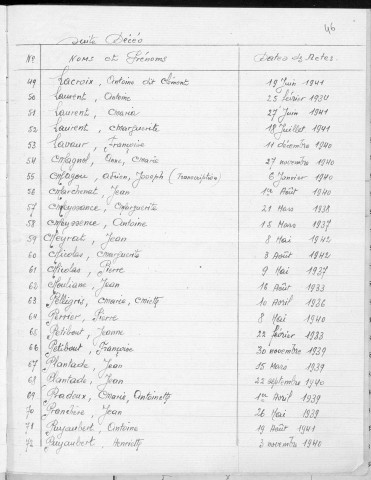 46
Suite Décès
Nos Noms et Prénoms Dates des Actes
49 Lacroix, Antoine dit Clément 19 Juin 1941
50 Laurent, Antoine 25 février 1934
51 Laurent, Maria 27 Juin 1941
52 Laurent, Marguerite 18 Juillet 1941
53 Lavaur, Françoise 11 décembre 1940
54 Magnol, Anne, Marie 27 novembre 1940
55 Magou, Adrien, Joseph (transcription) 6 Janvier 1940
56 Marchenat, Jean 1er Août 1940
57 Mayerance, Marguerite 21 Mars 1938
58 Mayssence, Antoine 15 Mars 1937
59 Meyrat, Jean 8 Mai 1942
60 Nicolas, Marguerite 3 Août 1942
61 Nicolas, Pierre 9 Mai 1937
62 Nouliane, Jean 16 Août 1933
63 Pellegris, Marie, 10 Avril 1936
64 Perrier, Pierre 8 Mai 1940
65 Petibout, Jeanne 22 février 1933
66 Petibout, Françoise 30 novembre 1939
67 Plantade, Jean 15 Mars 1939
68 Plantade, Jean 22 septembre 1940
69 Pradoux, Marie, Antoinette 1er Avril 1939
70 Ranchère, Jean 26 Mai 1939
71 Puyaubert, Antoine 19 Août 1941
72 Puyaubert, Henriette 3 novembre 1940